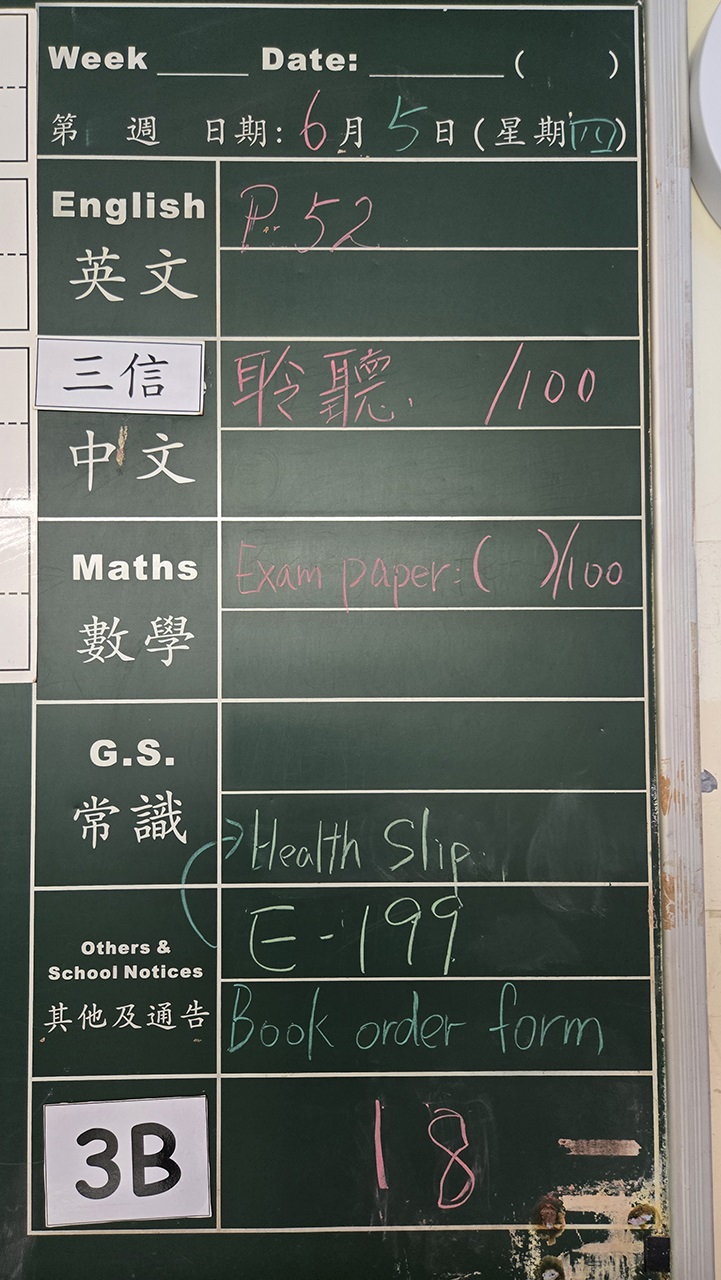 Week Date: ( )
第 週 日期: 6月5日(星期四)
English P. 52
英文
三信 聆聽. /100
中文
Maths Exam paper: ( )/100
數學
G.S.
常識 Health Slip
E-199
Others &
School Notices
其他及通告 Book order form
3B 18